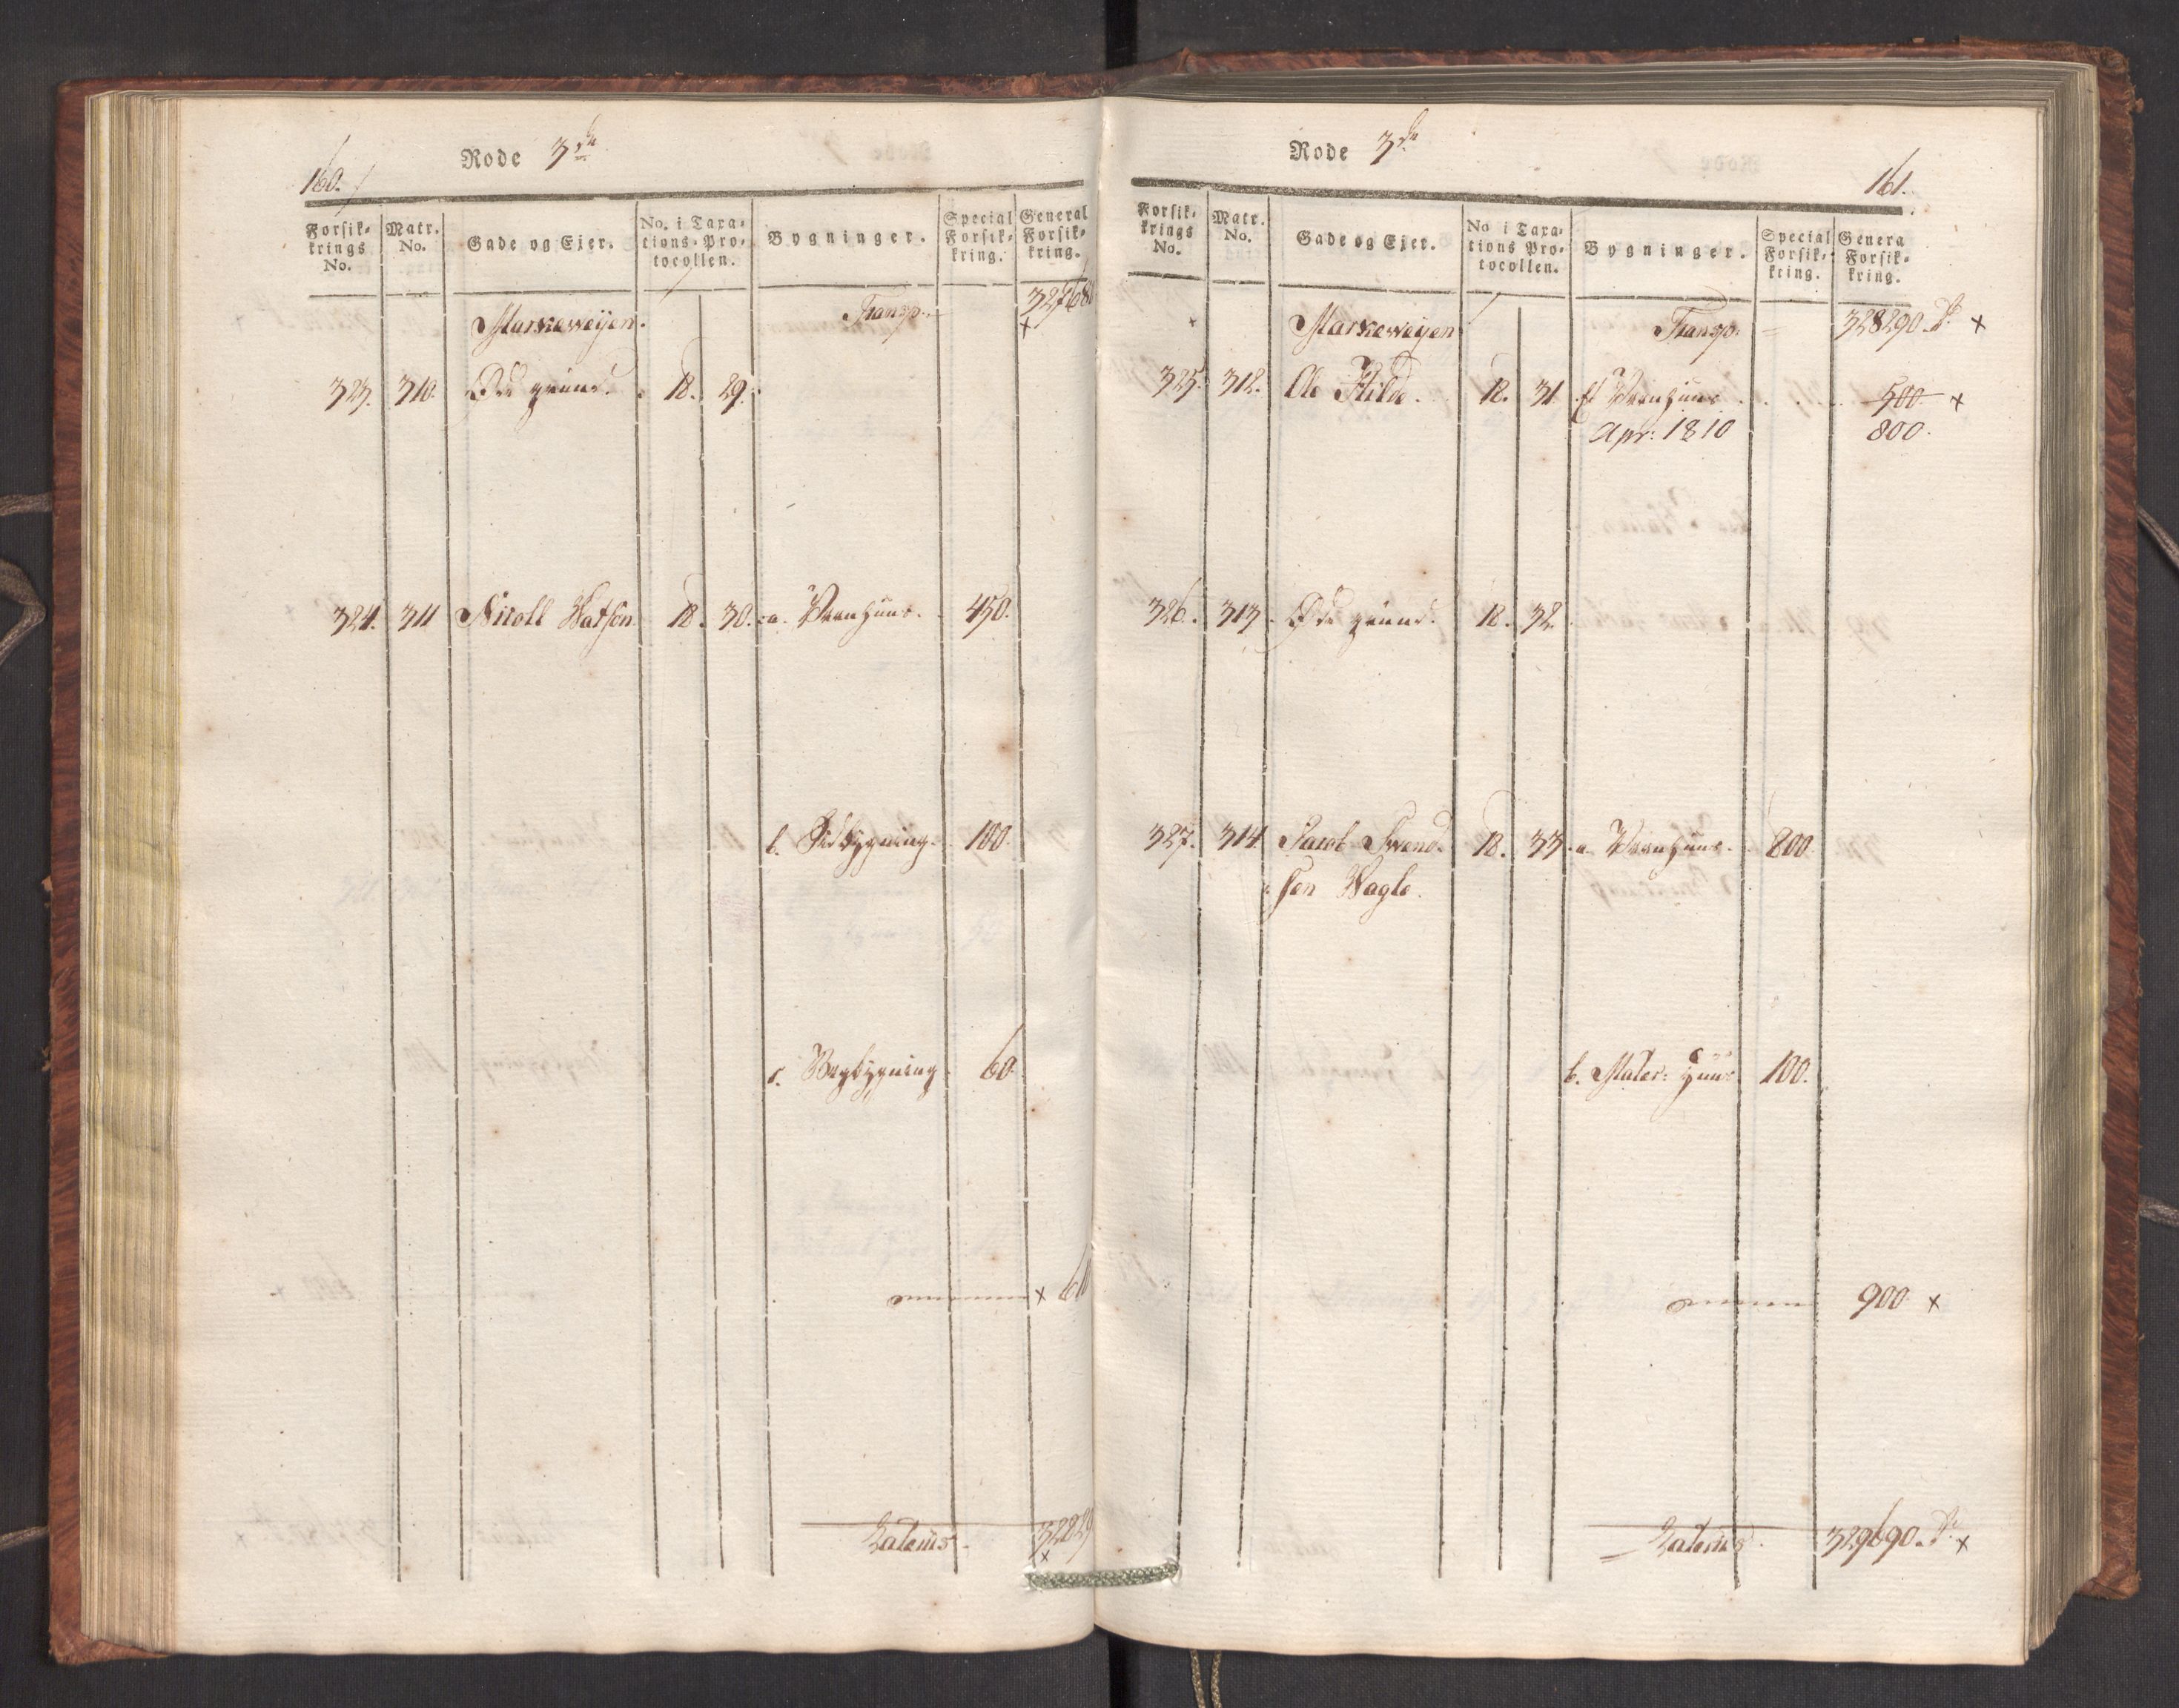 160.
Rode 3de
Forsik-
krings
No.
Matr.
No.
Gade og Ejer.
No. i Taxa-
tions-Pro-
tocollen.
Bygninger.
Special
Forsik-
kring.
General
Forsik-
kring.
Markeweÿen. Transp. 32768
x
323. 310. Øde grund. 18. 29.
324. 311 Nicoll Watson 18. 30. a. Vaanhuus. 450.
b. Sidbÿgning. 100.
c. Bagbÿgning 60.
x 610
Laterus. 32829
x
Rode 3de
161.
Forsik-
krings
No.
Matr.
No.
Gade og Ejer.
No i Taxa-
tions Pro-
tocollen.
Bygninger.
Special
Forsik-
kring.
Genera
Forsik-
kring.
Markeweÿen Transp. 328290. x
325. 312. Ole Hilde. 18. 31. Et Vaanhuus 500 x
Apr: 1810 800.
326. 313. Øde grund. 18. 32.
327. 314 Jacob Swend- 18. 33. a. Vaanhuus. 800
sen Wagle.
b. Mater: huus 100.
900 x
Laterus. 329690. x